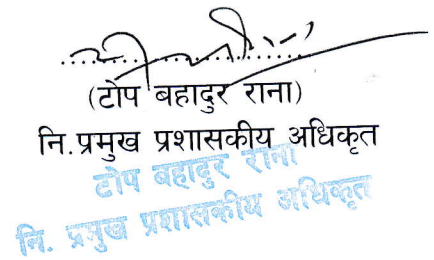 (टोप बहादुर राना)
नि.प्रमुख प्रशासकीय अधिकृत
टोप बहादुर राना
नि. प्रमुख प्रशासकीय अधिकृत